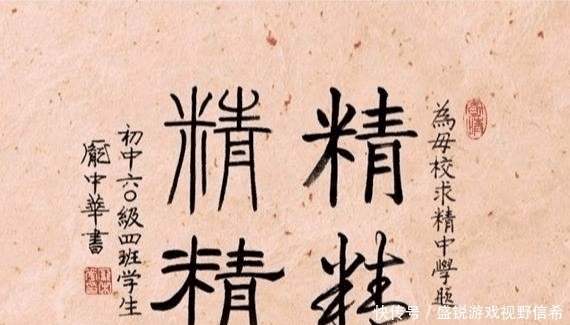 為母校求精中學題
精精
精精
初中六〇級四班学生
龐中華書
快传号／盛锐游戏视野信希